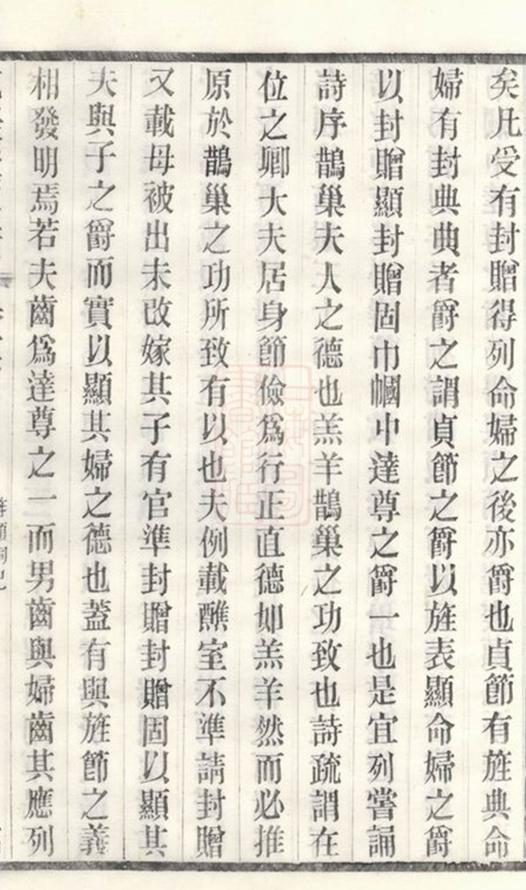 矣凡受有封贈得列命婦之後亦爵也貞節有旌典命
婦有封典典者爵之謂貞節之爵以旌表顯命婦之爵
以封贈顯封贈固巾幗中達尊之爵一也是宜列嘗誦
詩序鵲巢夫人之德也羔羊鵲巢之功致也詩疏謂在
位之卿大夫居身節儉為行正直德如羔羊然而必推
原於鵲巢之功所致有以也夫例載醮室不準請封贈
又載母被出未改嫁其子有官準封贈封贈固以顯其
夫與子之爵而實以顯其婦之德也蓋有與旌節之義
相發明焉若夫齒為達尊之一而男齒與婦齒其應列